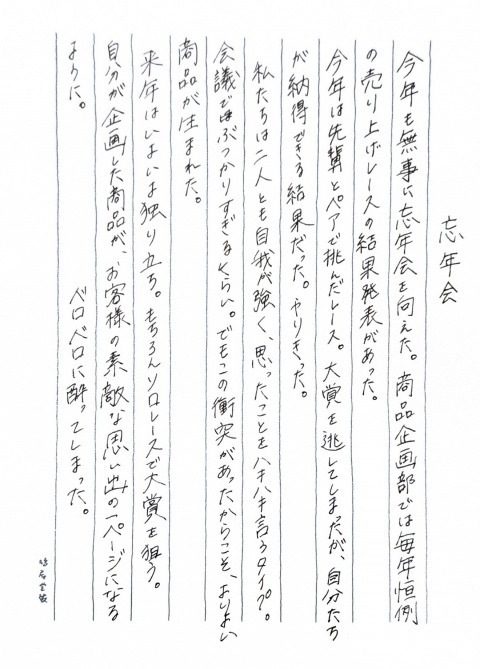 忘年会
今年も無事に忘年会を向えた。商品企画部では毎年恒例
の売り上げレースの結果発表があった。
今年は先輩とペアで挑んだレース。大賞を逃してしまったが、自分たち
が納得できる結果だった。やりきった。
私たちは二人とも自我が強く、思ったことをハキハキ言うタイプ。
会議ではぶつかりすぎるくらい。でもこの衝突があったからこそ、よりよい
商品が生まれた。
来年はいよいよ独り立ち。もちろんソロレースで大賞を狙う。
自分が企画した商品が、お客様の素敵な思い出の一ページになる
ように。
ベロベロに酔ってしまった。